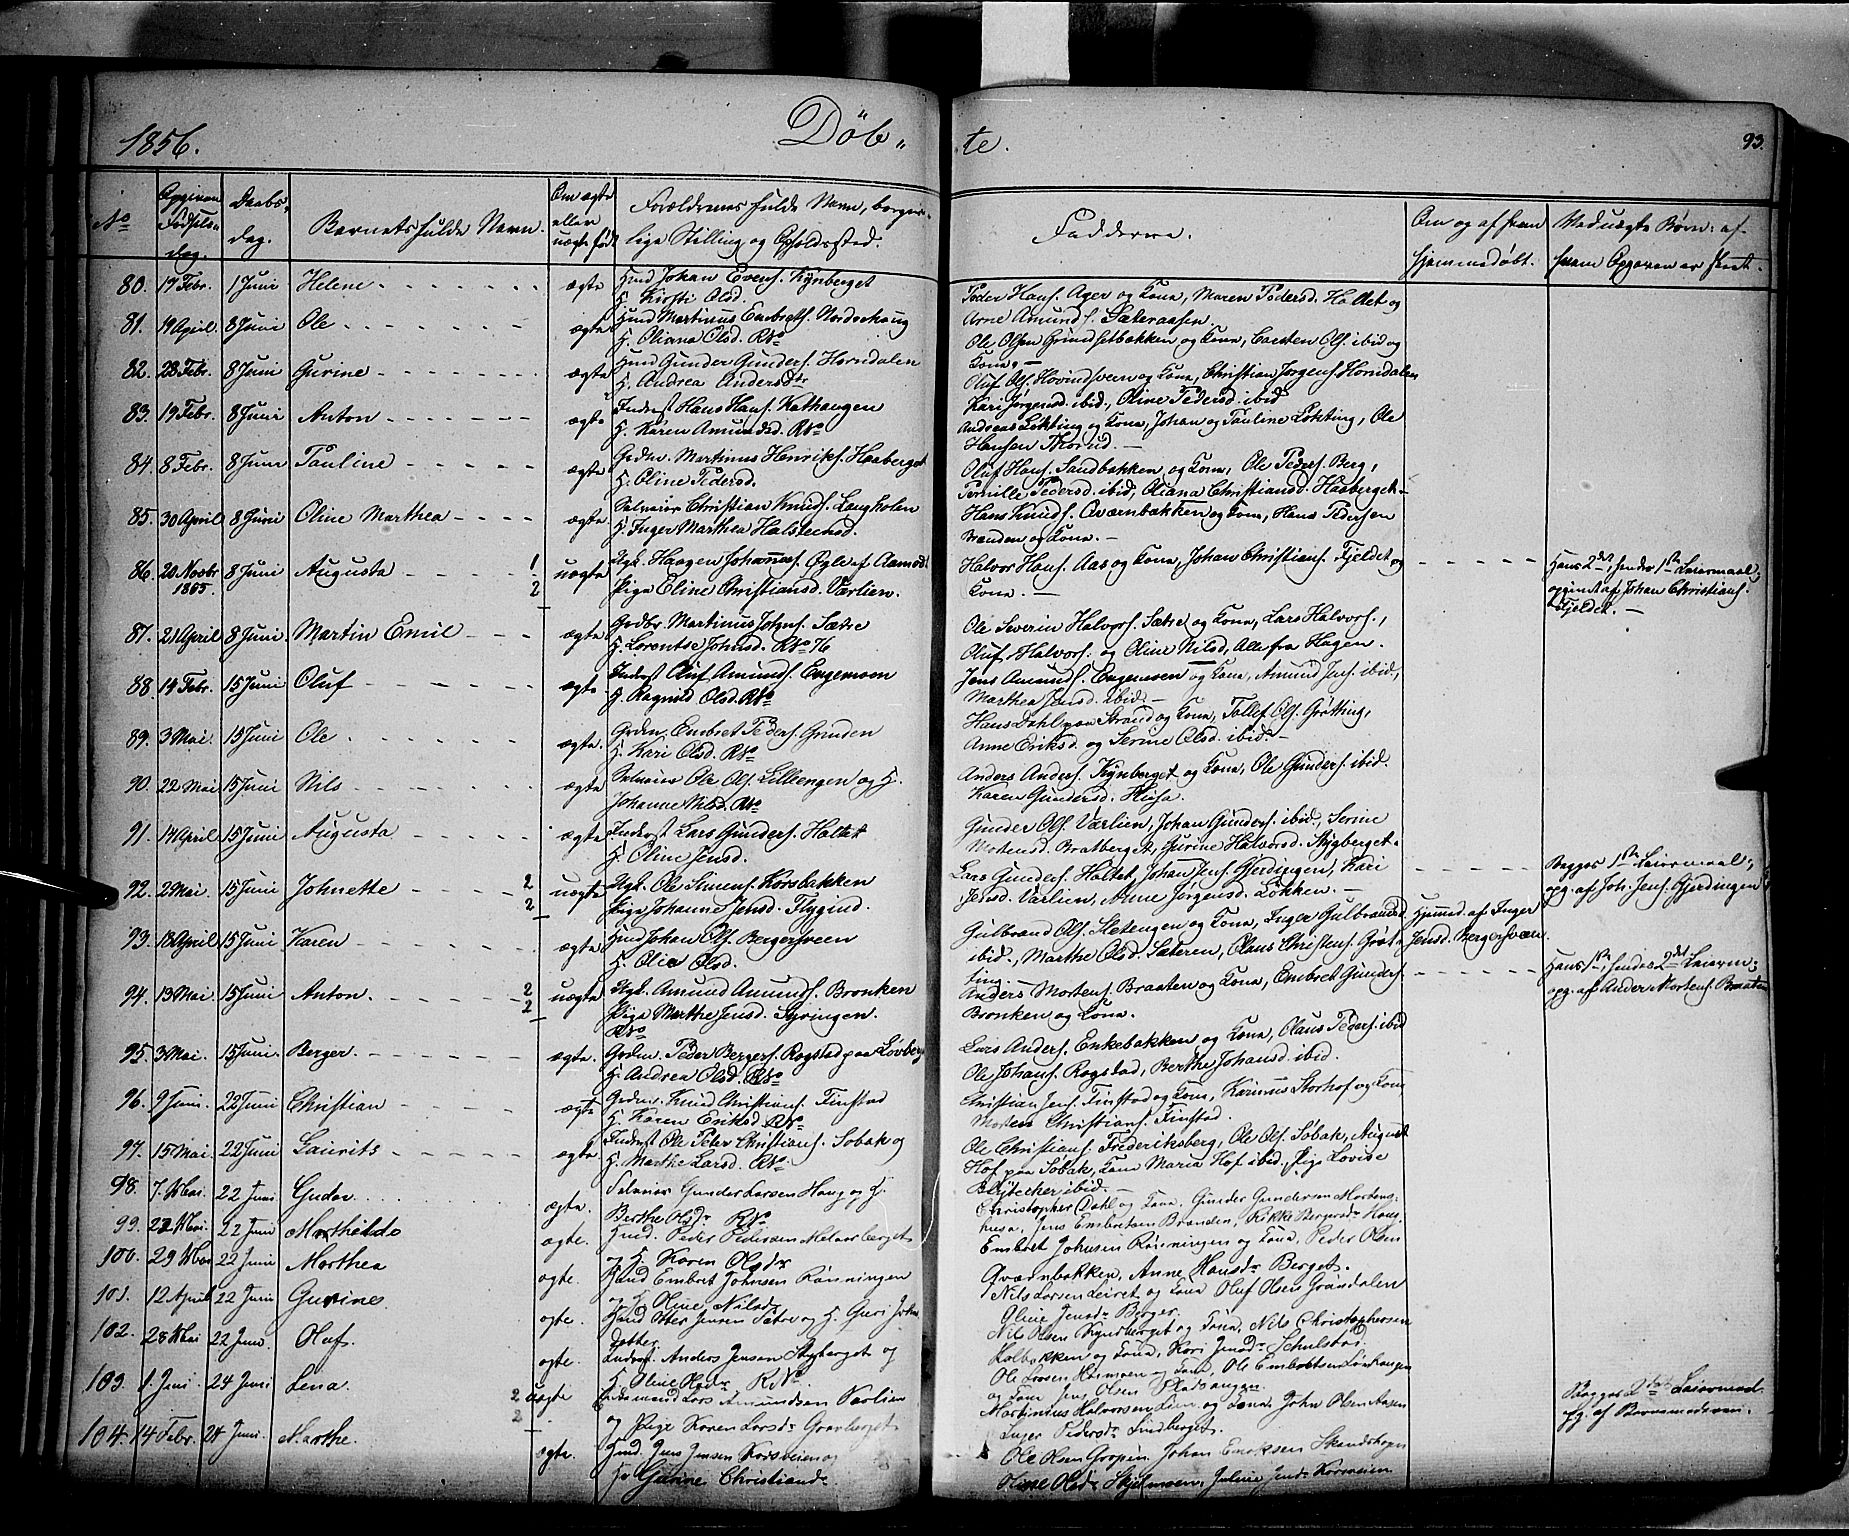 1856.
Döb„
te.
93.
No
Opgiven Fødsels-dag.
Daabs-dag.
Barnets fulde Navn.
Om ægte eller uægte født
Forældrenes fulde Navn, borger-
lige Stilling og Opholdssted.
Fadderne.
Om og af hvem hjemmedøbt.
Ved uægte Børn: af hvem Opgaven er skeet.
80. 17 Febr. 1 Juni Helene ægte Husmd Johan Evens. Kynberget
H. Kirsti Olsd.
Peder Hans. Ager og Kone, Maren Pedersd. Haltet og
Arne Amunds. Sæteraasen.
81. 19 April 8 Juni Ole ægte Husmd Martinus Embrets. Nordschaug
H. Oliana Olsd. Rno
Ole Olsen Grundsetbakken og Kone, Carsten Ols. ibid og
Kone.
82. 28 Febr. 8 Juni Gurine ægte Husmd Gunder Gunders. Horndalen
H. Andrea Andersdtr
Oluf Ols. Hovindsveen og Kone, Christian Jørgens. Horndalen
Kari Jørgensd. ibid., Oline Pedersd. ibid
83. 19 Febr. 8 Juni Anton ægte Inderst Hans Hans. Kathaugen
H. Karen Amundsd. Rno
Andreas Løkting og Kone, Johan og Pauline Løkting, Ole
Hansen Thorud.
84. 8 Febr. 8 Juni Pauline ægte Grdbr. Martinus Henriks. Haaberget
H. Oline Pedersd.
Oluf Hans. Sandbakken og Kone, Ole Peders. Berg,
Pernille Pedersd. ibid, Oliana Christiansd. Haaberget.
85. 30 April 8 Juni Oline Marthea ægte Selveier Christian Knuds. Langholen
H. Inger Marthea Halsteinsd.
Hans Knuds. Qværnbakken og Kone, Hans Pedersen
Branden og Kone.
86. 20 Novbr 1855. 8 Juni Augusta 1 2 uægte Ugk. Haagen Johannes. Øgle af Aamodt
Pige Eline Christiansd. Værlien.
Halvor Hans. Aas og Kone, Johan Christians. Fjeldet og
Kone.
Hans 2det, hendes 1ste Leiermaal;
opgivet af Johan Christians.
Fjeldet.
87. 21 April 8 Juni Martin Emil ægte Grdbr Martinus Johns. Sætre
H. Lorentse Johnsd. Rno 76
Ole Severin Halvors. Sætre og Kone, Lars Halvors.,
Oluf Halvors. og Oline Nilsd, Alle fra Hagen.
88. 14 Febr. 15 Juni Oluf ægte Inderst Oluf Amunds. Engemoen
H. Ragnild Olsd. Rno
Jens Amunds. Engemoen og Kone, Amund Jens. ibid,
Marthea Jensd. ibid.
89. 3 Mai 15 Juni Ole ægte Grdbr. Embret Peders. Grinden
H. Kari Olsd. Rno
Hans Dahl paa Strand og Kone, Tollef Ols. Grøtting,
Anne Eriksd. og Serine Olsd. ibid.
90. 22 Mai 15 Juni Nils ægte Selveier Ole Ols. Lillengen og H.
Johanne Nilsd. Rno
Anders Anders. Kynberget og Kone, Ole Gunders. ibid.
Karen Gundersd.
91. 14 April 15 Juni Augusta ægte Inderst Lars Gunders. Haltet
H. Oline Jensd.
Gunder Ols. Værlien, Johan Gunders. ibid, Serine
Mortensd. Bratberget, Gurine Halvorsd. Stygberget.
92. 2 Mai 15 Juni Johnette 2 2 uægte Ugk. Ole Simens. Korsbakken
Pige Johanne Jensd. Flygind.
Lars Gunders. Haltet, Johan Jens. Gjerdingen, Kari
Jensd. Værlien, Anne Jørgensd. Løkken.
Begges 1ste Leiermaal;
opg. af Joh. Jens. Gjerdingen
93. 18 April 15 Juni Karen ægte Husmd Johan Ols. Bergersveen
H. Olia Olsd.
Gulbrand Ols. Sletengen og Kone, Inger Gulbrandsd
ibid., Marthe Olsd. Sæteren, Olaus Christens. Grøt-
ting.
Hjemmed. af Inger
Jensd. Bergersveen.
94. 13 Mai 15 Juni Anton. 2 2 uægte Ugk. Amund Amunds. Bronken
Pige Marthe Jensd. Syringen.
Rno
Anders Mortens. Braaten og Kone, Embret Gunders.
Bronken og Kone.
Hans 1ste, hendes 2det Leierm.;
opg. af Anders Mortens. Braaten
95. 3 Mai. 15 Juni Berger ægte. Grdbr. Peder Bergers. Rogstad paa Løvberg
H. Andrea Olsd. Rno
Lars Anders. Enkebakken og Kone, Olaus Peders. ibid
Ole Johans. Rogstad, Berthe Johansd. ibid.
96. 9 Juni. 22 Juni Christian ægte Grdbr. Knud Christians. Finstad
H. Karen Eriksd. Rno
Christian Jens. Finstad og Kone, Karinus Storhof og Kone,
Morten Christians. Finstad.
97. 15 Mai. 22 Juni Laurits ægte Inderst Ole Peter Christians. Sobak og
H. Marthe Larsd. Rno
Ole Christians. Frederiksberg, Ole Ols. Sobak, August
Hof paa Sobak, Kone Maria Hof ibid, Pige Lovise
Blybecher ibid.
98. 7. Mai. 22 Juni Gudor ægte. Selveier Gunder Larsen Haug og H.
Berthe Olsdr Rno
Christopher Dahl og Kone, Gunder Gundersen Mortens-
husa, Jens Embretsen Branden, Rikke Bergersdr Haug.
99. 22 Mai. 22 Juni Mathilde ægte. Husmd. Peder Pedersen Melaasberget
og H. Karen Olsdr
Embret Johnsen Rønningen og Kone, Peder Olsen
Qværnbakken, Anne Hansdr Berget.
100. 29 Mai 22 Juni Marthea ægte. Husmd Embret Johnsen Rønningen
og H. Oline Nilsdr
Nils Larsen Leiret og Kone Oluf Olsen Grøndalen
Oline Jensdr Berger.
101. 12 April 22 Juni Gurine ægte. Husmd Peter Jensen Sætre og H. Guri Johns
datter
Nils Olsen Kynberget og Kone, Nils Christophersen
Holbækken og Kone, Kari Jensdr Schulstad.
102. 28 Mai 22 Juni. Oluf. ægte. Inderst. Anders Jensen Stygberget og
H. Oline Olsdr Rno
Ole Larsen Hasmoen og Kone, Ole Embretsen Løvhaugen
og Kone Jens Olsen
103. 1. Juni 24 Juni Lena. 2 2 uægte Enkemand Lars Amundsen Værlien
og Pige Karen Larsdr Gravberget.
Martinius Halvorsen Lien og Kone, John Olsen Aasen
Inger Pedersdr Lindberget.
Begges 2det Leiermaal.
Opg. af Barnemoderen.
104. 14 Febr. 24 Juni. Marthe. ægte. Husmd. Jens Jensen Korsveien og
H Gurine Christiansdr
Ole Olsen Gropen Johan Eriksen Skandshagen
Oline Olsdr Skjelmoen, Juline Jensdr Korsveien